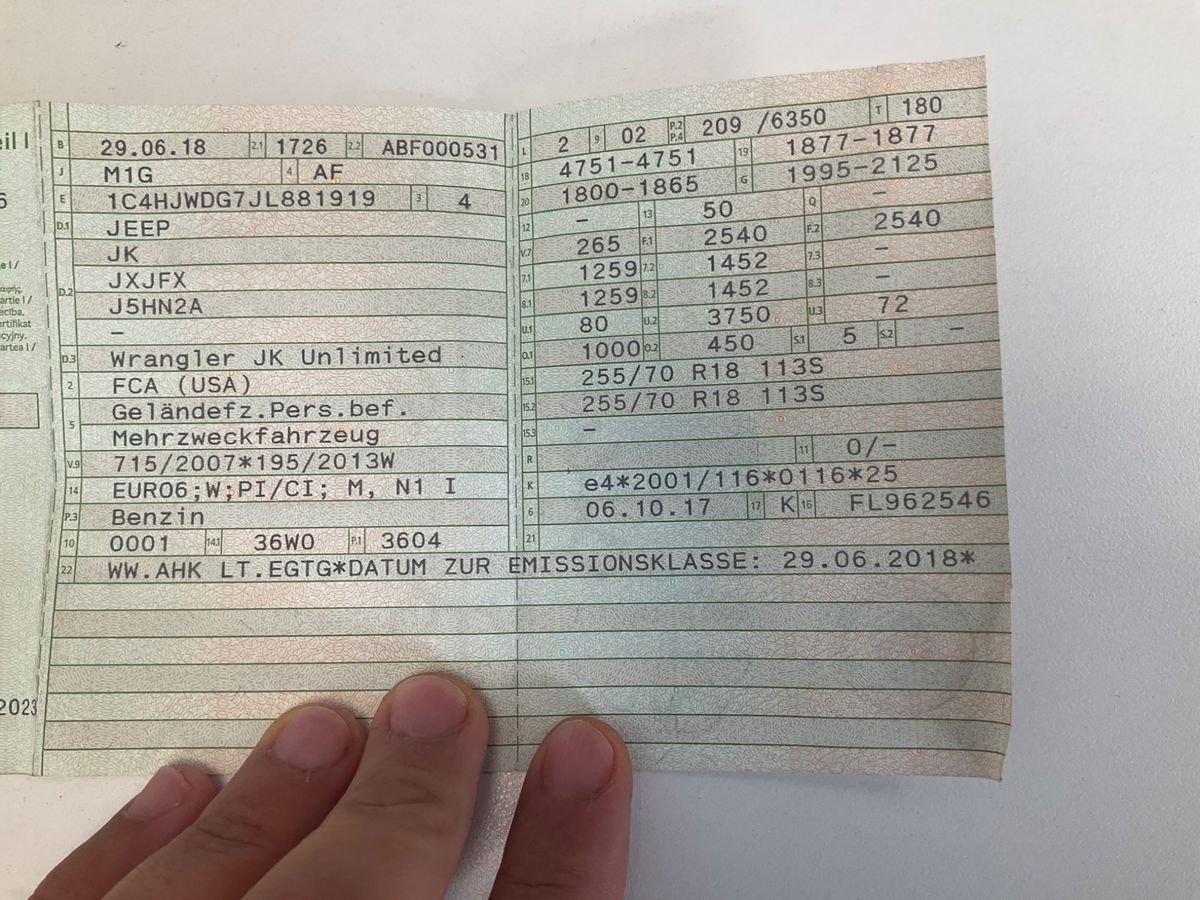 eil I
B 29.06.18 2.1 1726 2.2 ABF000531
J M1G 4 AF
E 1C4HJWDG7JL881919 3 4
D.1 JEEP
JK
D.2 JXJFX
J5HN2A
–
D.3 Wrangler JK Unlimited
2 FCA (USA)
5 Geländefz.Pers.bef.
Mehrzweckfahrzeug
V.9 715/2007*195/2013W
14 EURO6;W;PI/CI; M, N1 I
P.3 Benzin
10 0001 14.1 36W0 P.1 3604
L 2 9 02 P.2 P.4 209 /6350 T 180
18 4751-4751 19 1877-1877
20 1800-1865 G 1995-2125
12 – 13 50 Q –
V.7 265 F.1 2540 F.2 2540
7.1 1259 7.2 1452 7.3 –
8.1 1259 8.2 1452 8.3 –
U.1 80 U.2 3750 U.3 72
O.1 1000 O.2 450 S.1 5 S.2 –
15.1 255/70 R18 113S
15.2 255/70 R18 113S
15.3 –
R 11 0/–
K e4*2001/116*0116*25
6 06.10.17 17 K 16 FL962546
21
22 WW.AHK LT.EGTG*DATUM ZUR EMISSIONSKLASSE: 29.06.2018*
e I /
artie I /
ecība,
ertifikat
cyjny.
artea I /
2023